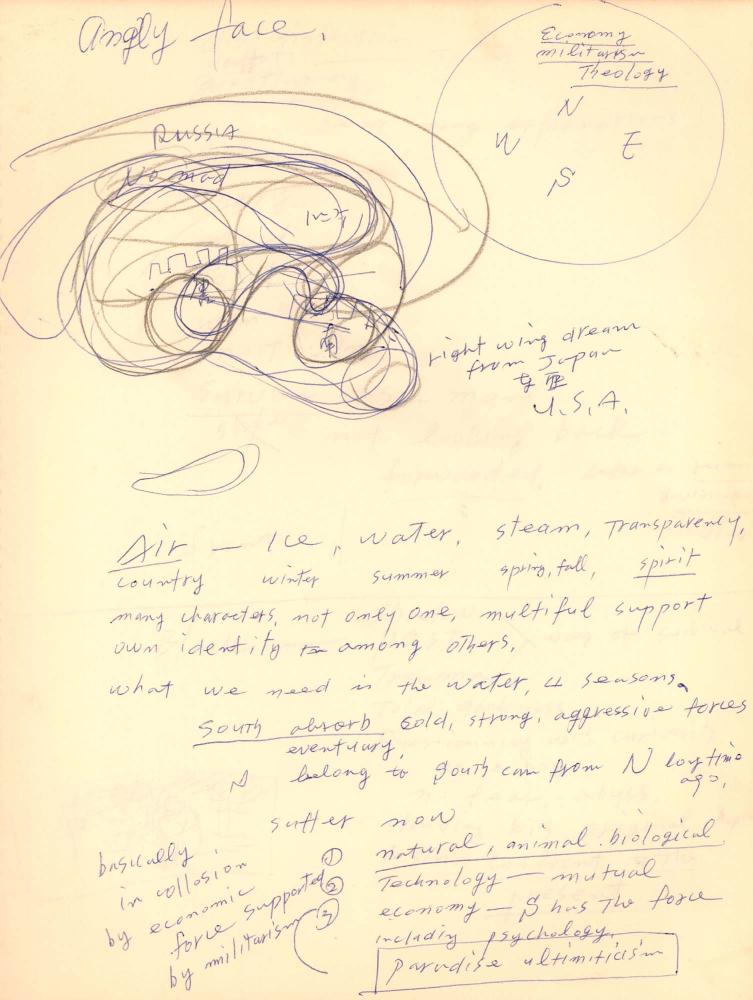 Angly face.
Economy
militarism
Theology
N
W E
S
RUSSIA
Nomad
南
right wing dream
from Japan
U.S.A.
Air — Ice, water, steam, Transparency,
country winter summer spring, fall, spirit
many characters, not only one, multiful support
own identity among others.
what we need is the water, 4 seasons.
South absorb cold, strong, aggressive forces
eventuary,
N belong to South from N long time
ago.
suffer now
basically
in collosion
by economic
force supported
by militarism
① natural, animal. biological
② Technology — mutual
③ economy — S has the force
includiy psychology.
Paradise ultimiticism